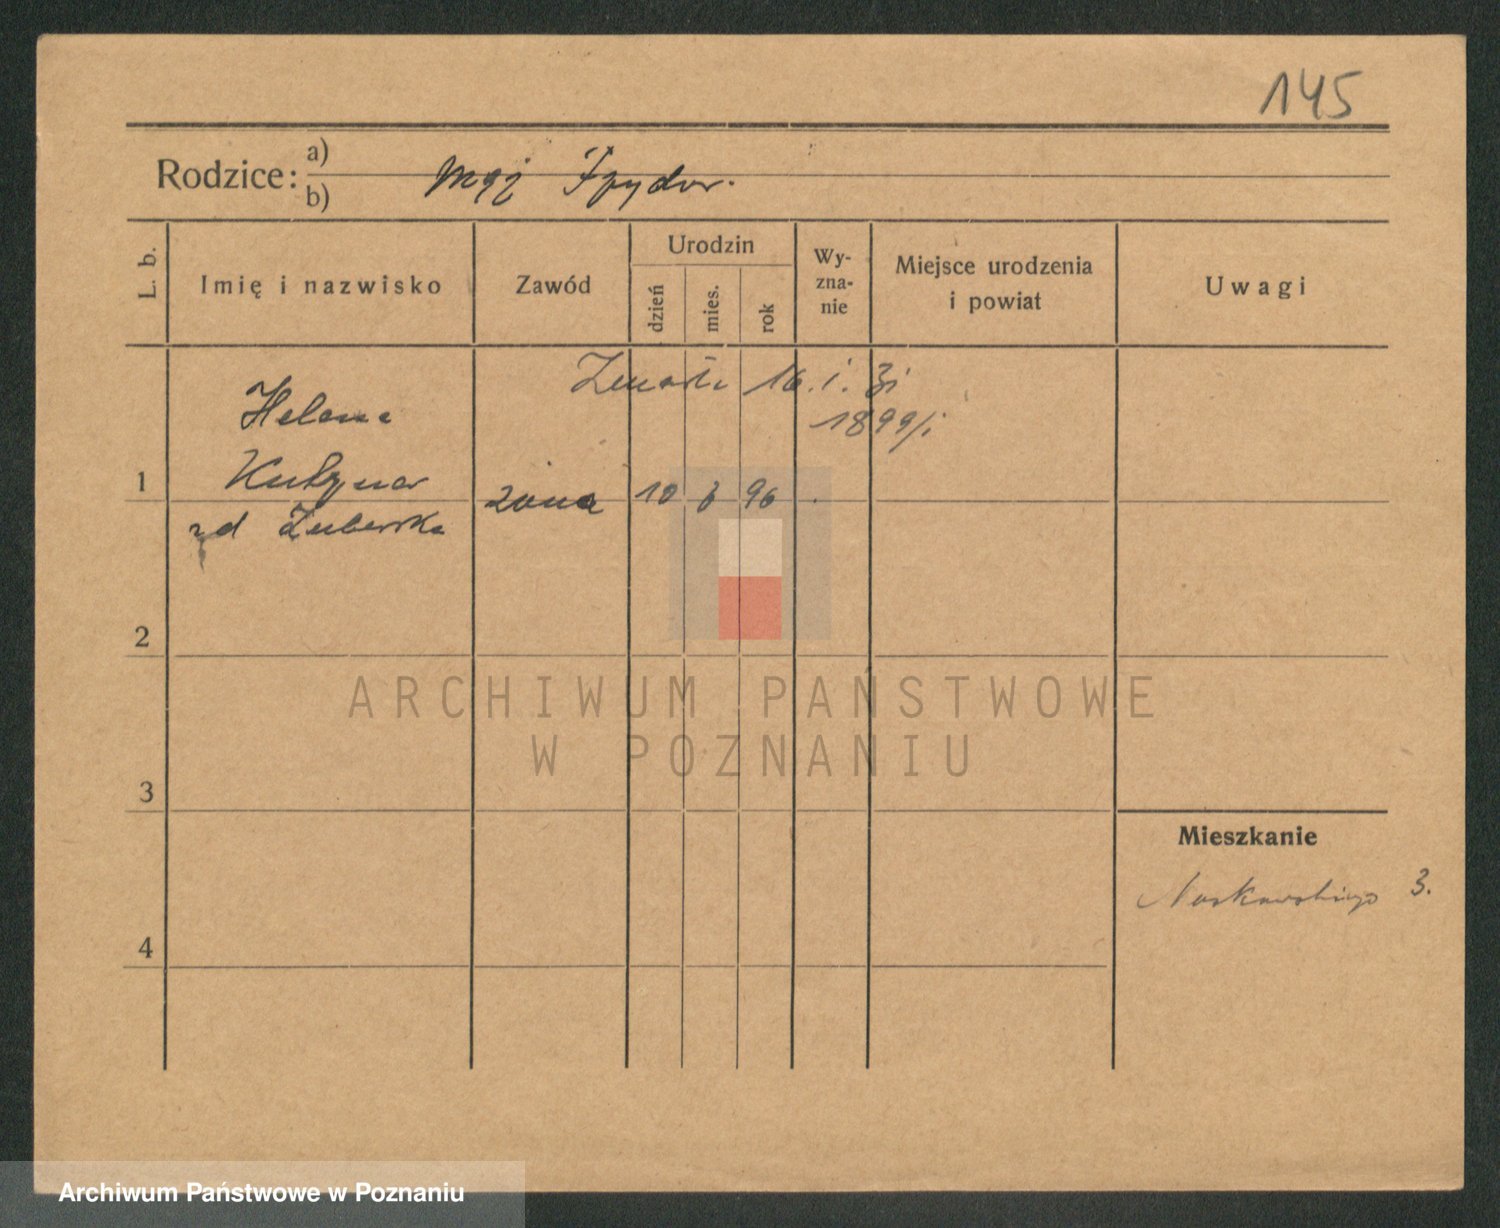 145
Rodzice:
a)
b)
mąż Izydor.
L. b.
Imię i nazwisko
Zawód
Urodzin
dzień
mies.
rok
Wy-
zna-
nie
Miejsce urodzenia
i powiat
Uwagi
Zmarła 16. i. 31
1899/i
Helena
1
żona 10 3 96
zd
2
3
4
Mieszkanie
Noskowskiego 3.
ARCHIWUM PAŃSTWOWE
W POZNANIU
Archiwum Państwowe w Poznaniu